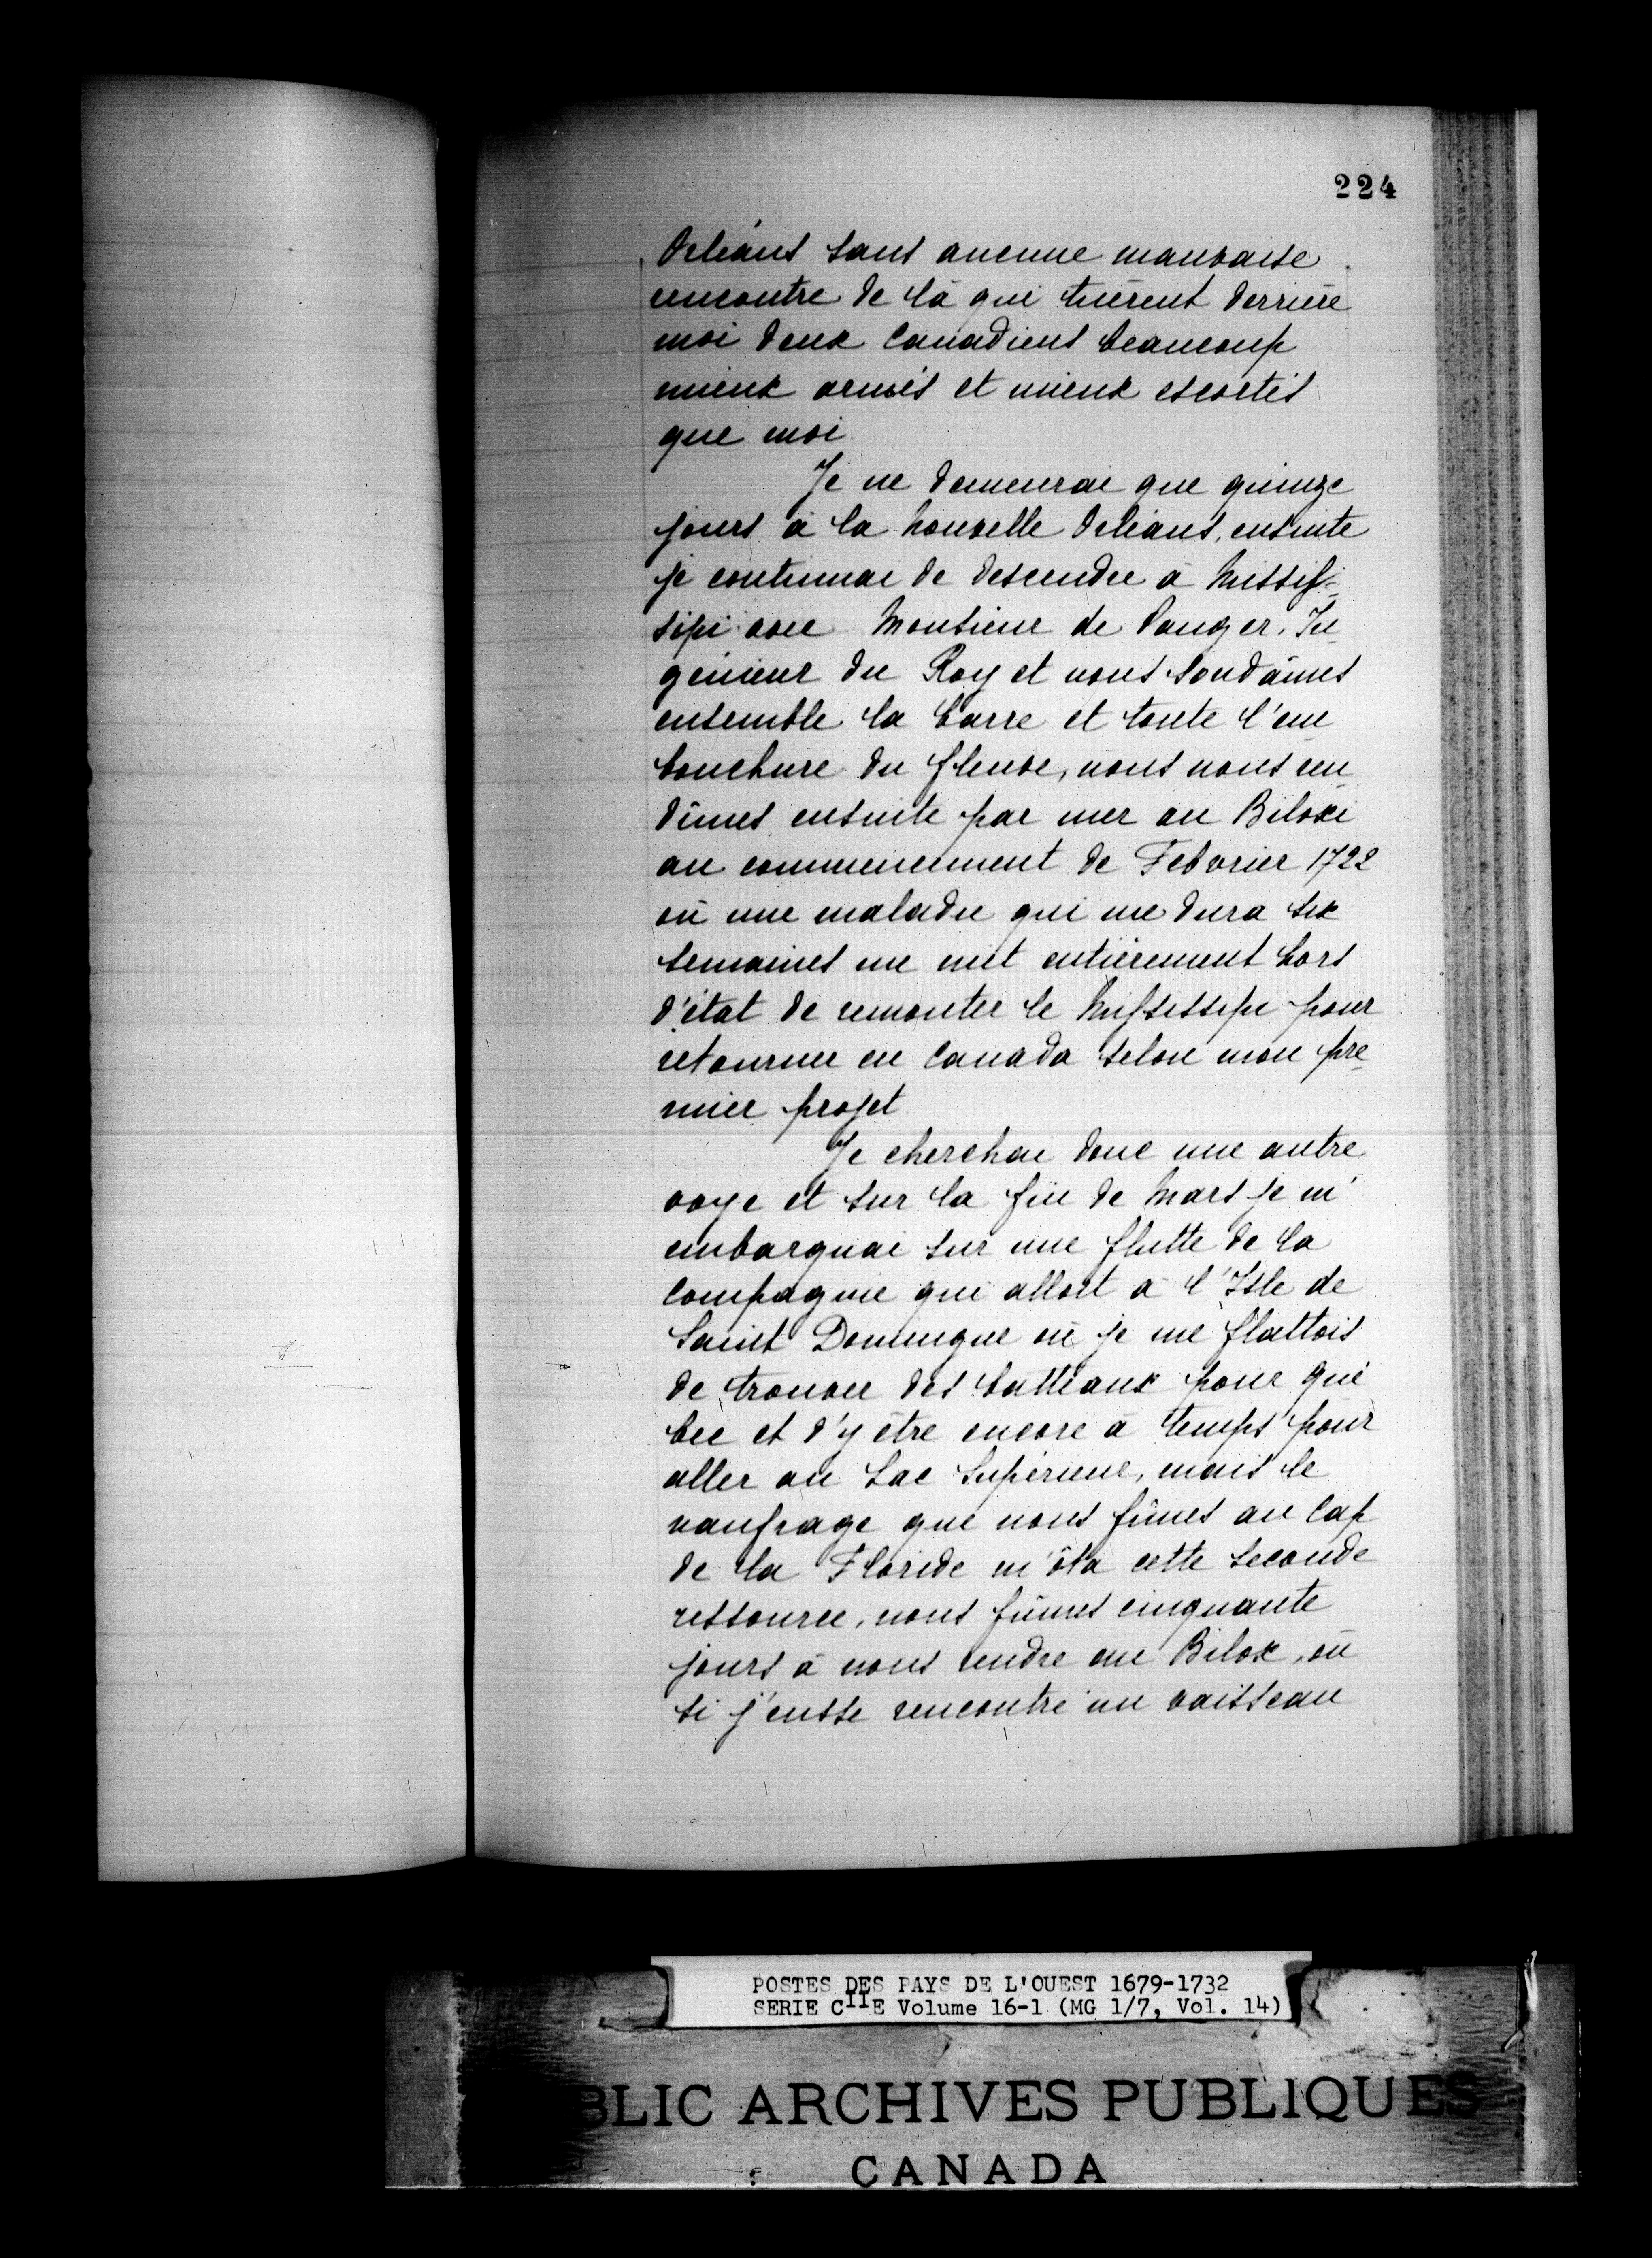 224
Orléans sans aucune mauvaise
rencontre de là qui tuèrent derrière
moi deux Canadiens beaucoup
mieux armés et mieux escortés
que moi
Je ne demeurai que quinze
jours à la Nouvelle Orléans, ensuite
je continuai de descendre à Missis=
sipi avec Monsieur de Pauger, In
génieur du Roy et nous sondâmes
ensemble la barre et toute l'em
bouchure du fleuve, nous nous ren
dîmes ensuite par mer au Biloxi
au commencement de Febvrier 1722
où une maladie qui me dura six
semaines me mit entièrement hors
d'état de remonter le Mississipi pour
retourner en Canada selon mon pre
mier projet
Je cherchai donc une autre
voye et sur la fin de Mars je m'
embarquai sur une flutte de la
Compagnie qui alloit à l'Isle de
Saint Domingue où je me flattois
de trouver des batteaux pour Qué
bec et d'y être encore à temps pour
aller au Lac Supérieur, mais le
naufrage que nous fîmes au Cap
de la Floride m'ôta cette seconde
ressource, nous fûmes cinquante
jours à nous rendre au Bilox, où
si j'eusse rencontré un vaisseau
POSTES DES PAYS DE L'OUEST 1679-1732
SERIE CIIE Volume 16-1 (MG 1/7, Vol. 14)
BLIC ARCHIVES PUBLIQUES
CANADA